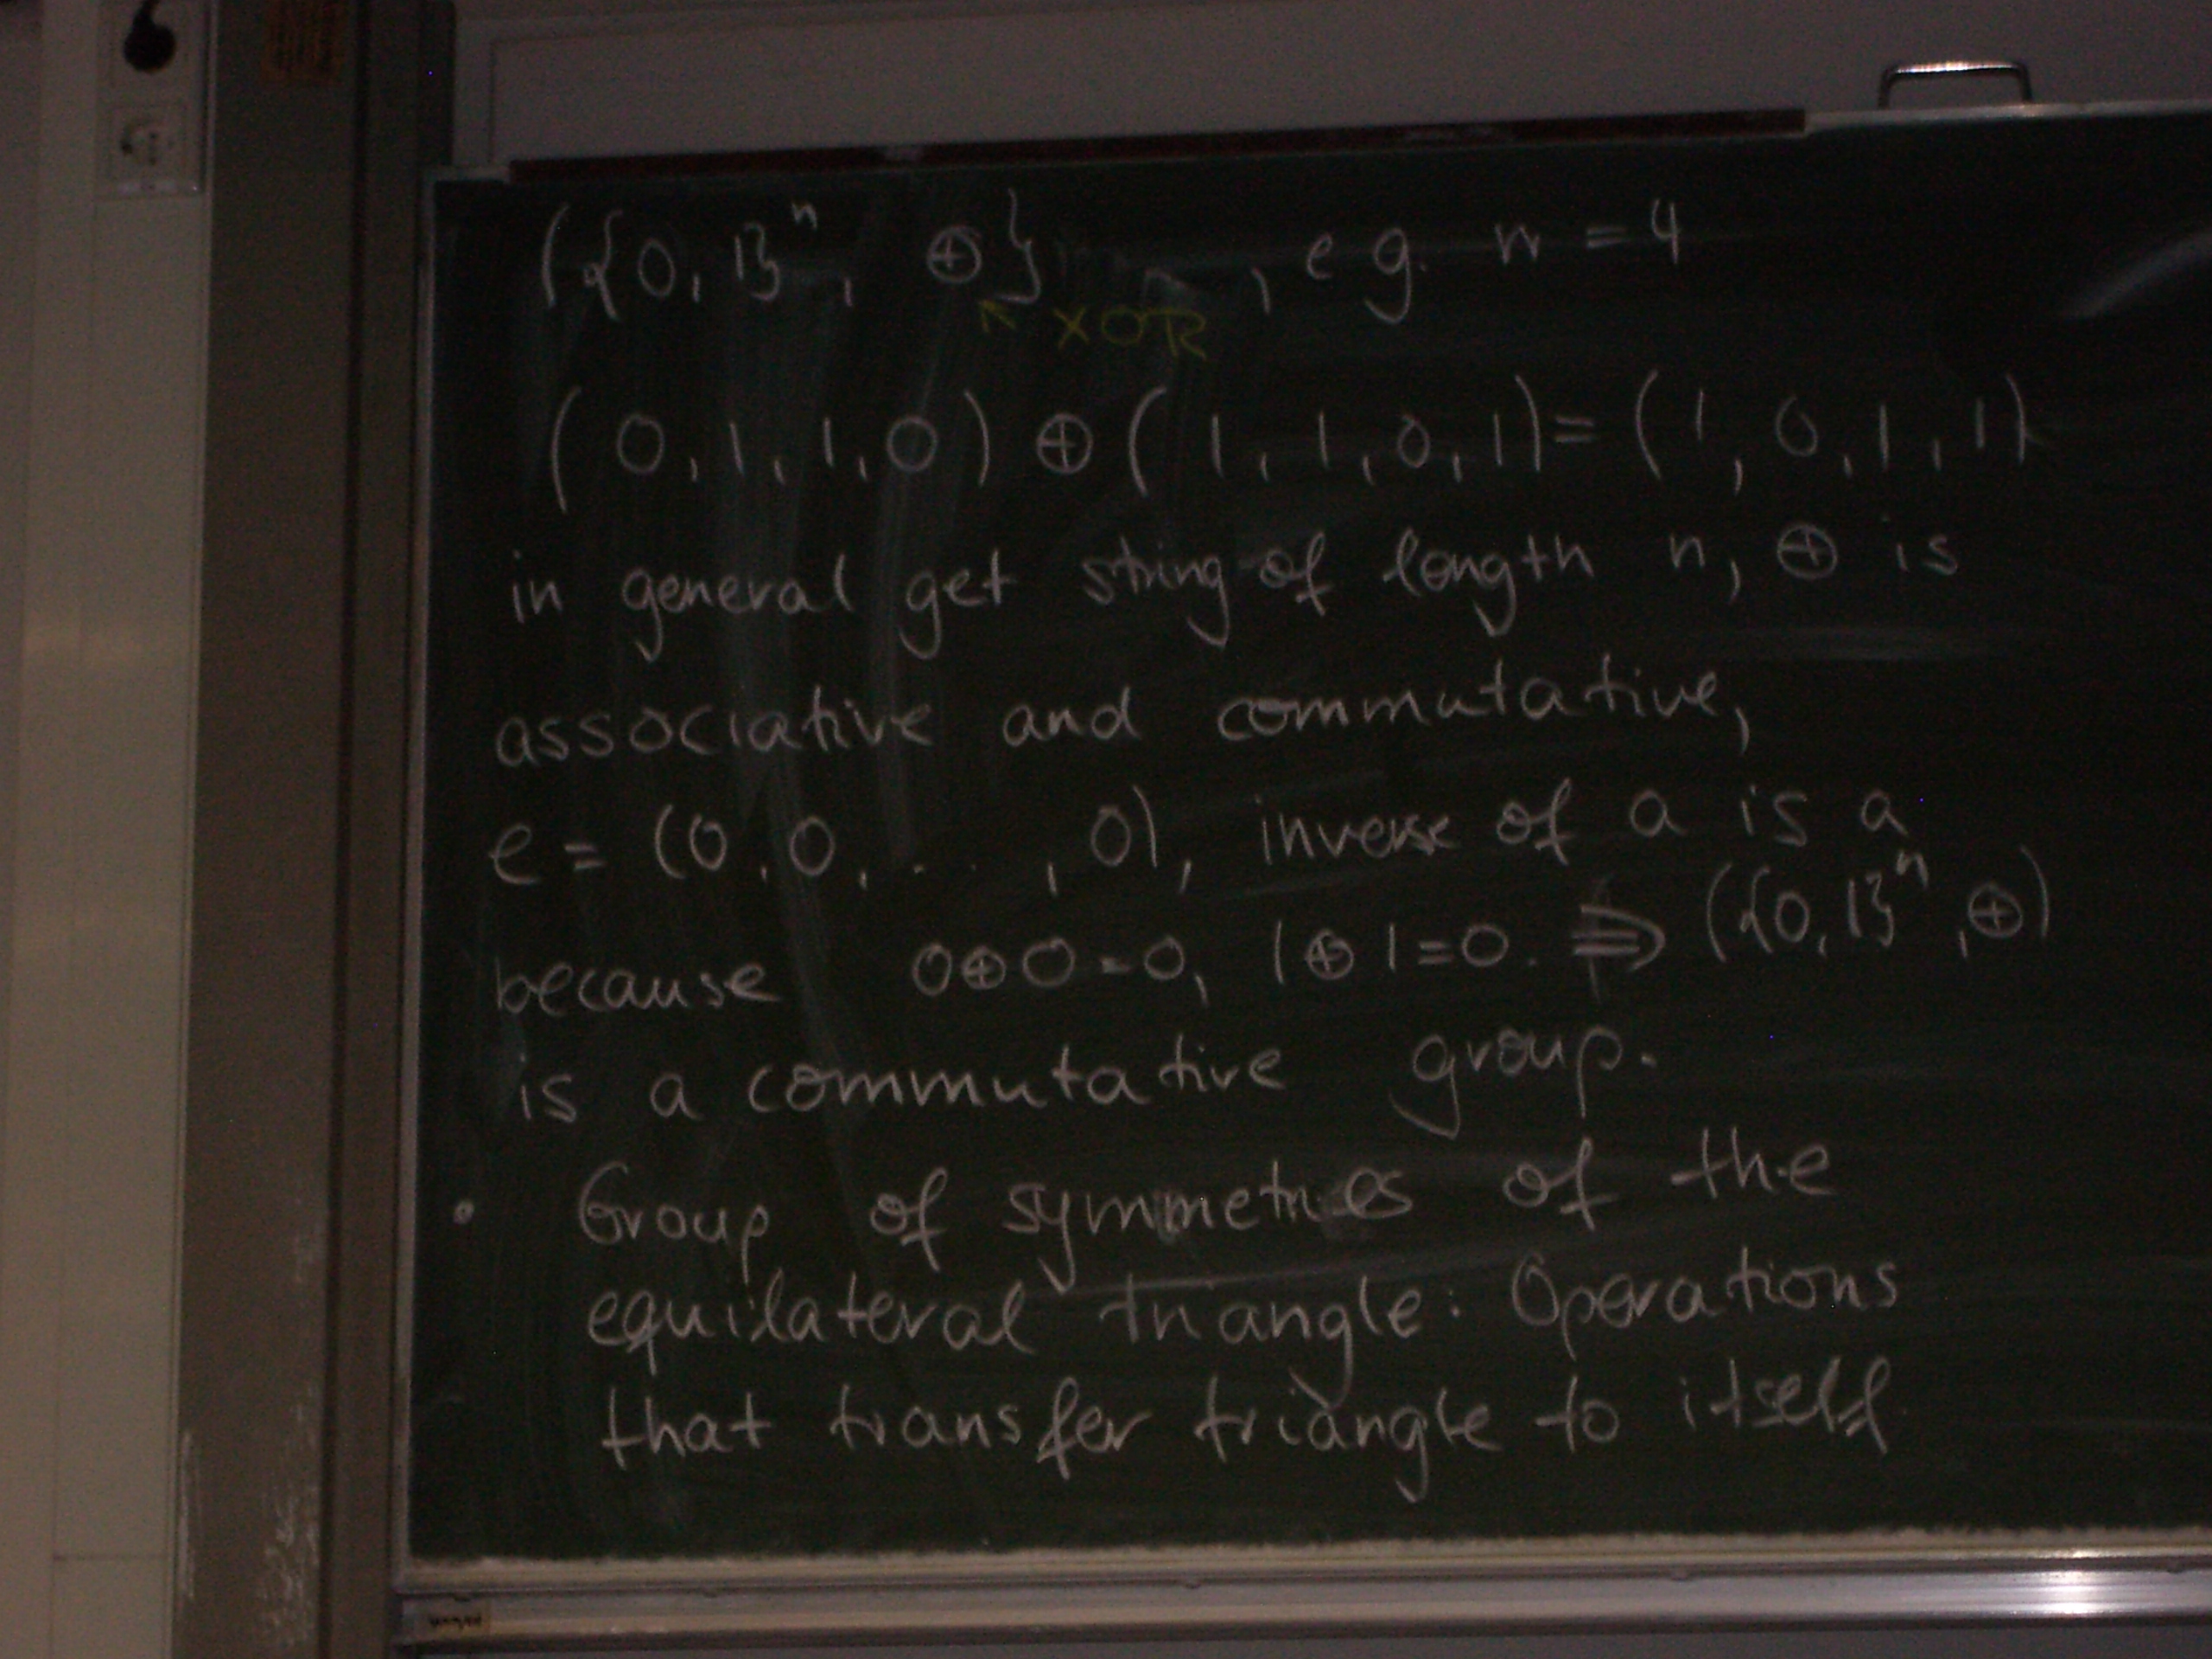 ({0,1}ⁿ, ⊕} , e g. n = 4
↖ XOR
(0,1,1,0) ⊕ (1,1,0,1) = (1,0,1,1)
in general get string of length n, ⊕ is
associative and commutative,
e = (0,0,...,0), inverse of a is a
because 0⊕0=0, 1⊕1=0. ⇒ ({0,1}ⁿ,⊕)
is a commutative group.
• Group of symmetries of the
equilateral triangle: Operations
that transfer triangle to itself